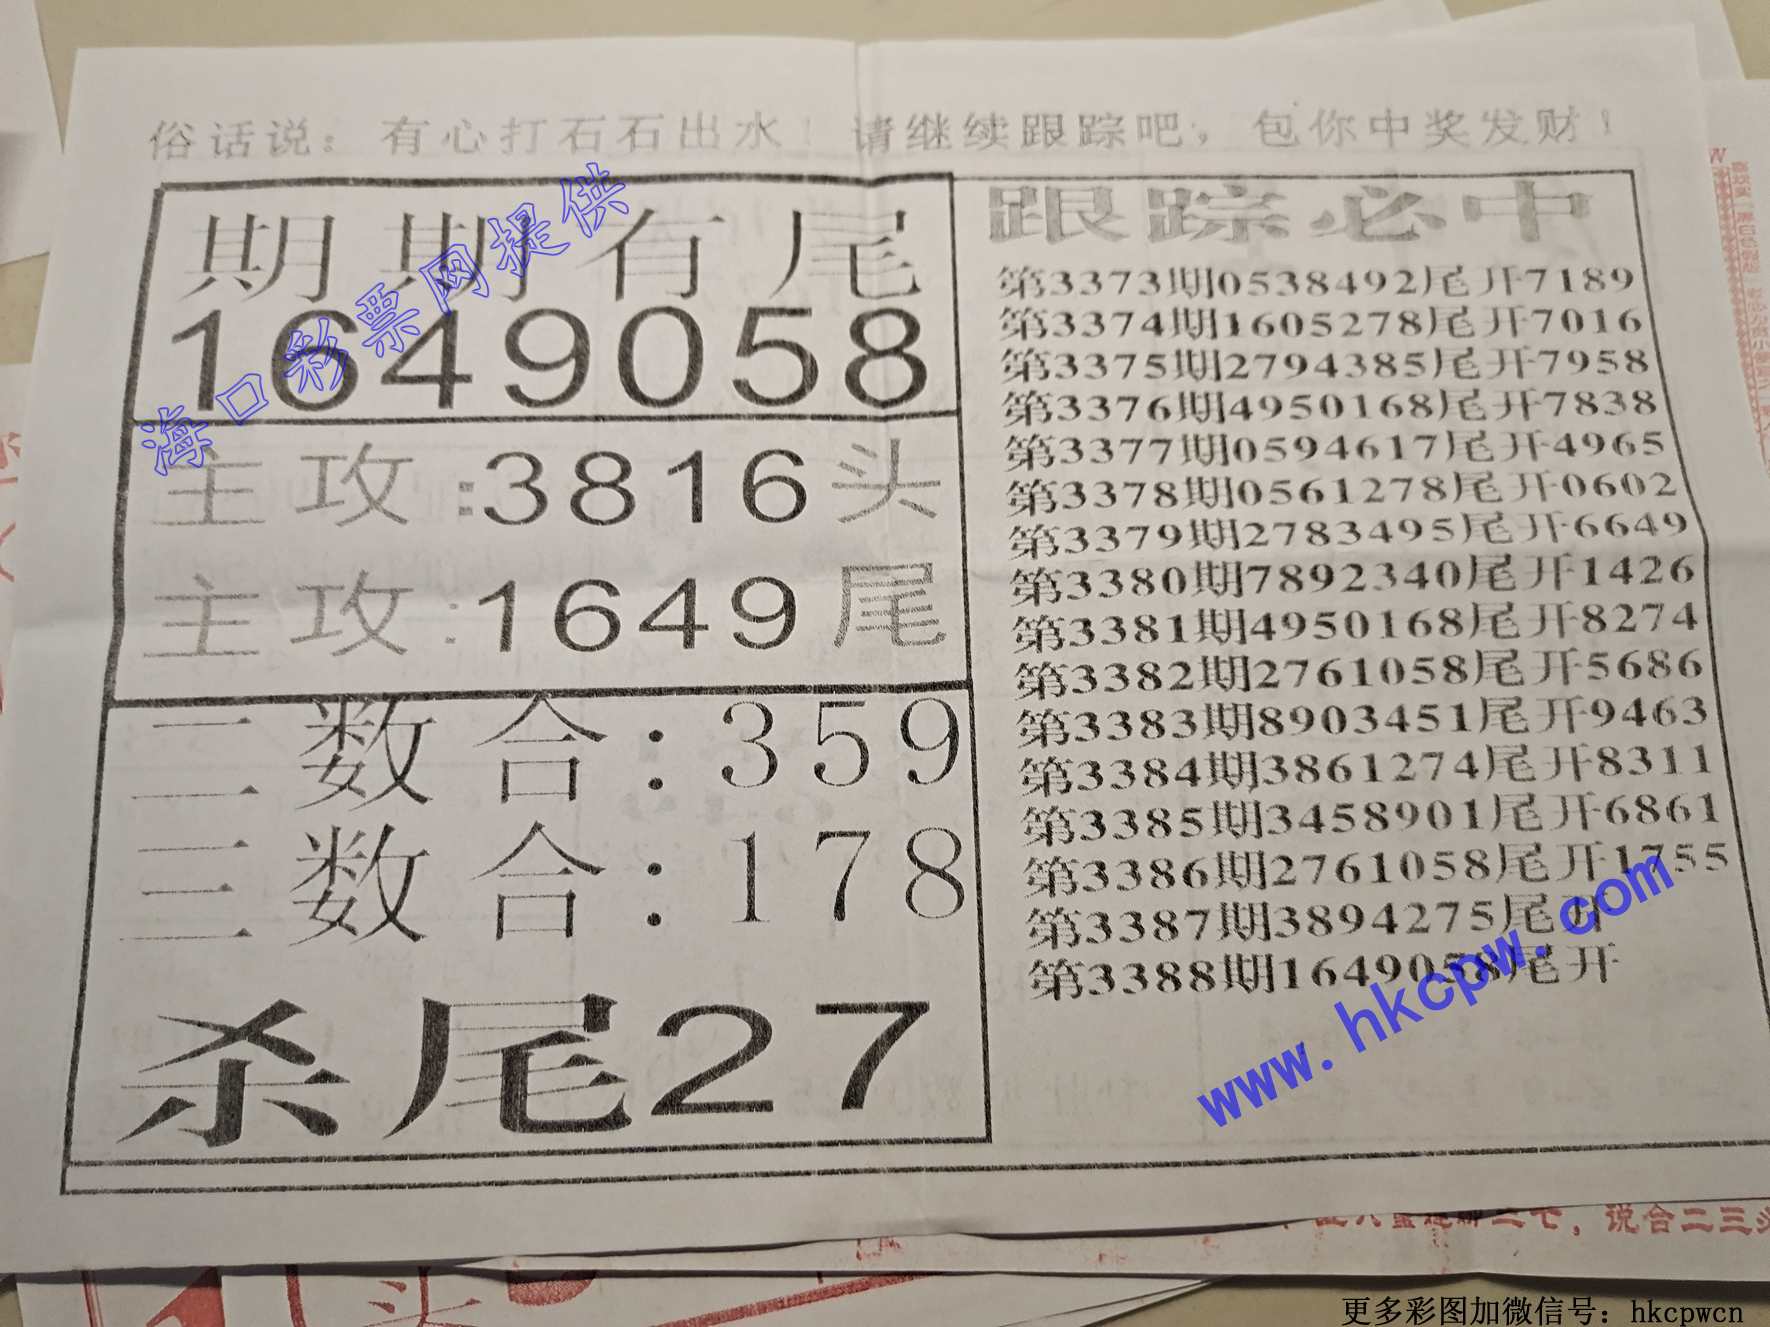 俗话说：有心打石石出水！请继续跟踪吧，包你中奖发财！
期期有尾
1649058
主攻:3816头
主攻:1649尾
二数合:359
三数合:178
杀尾27
跟踪必中
第3373期0538492尾开7189
第3374期1605278尾开7016
第3375期2794385尾开7958
第3376期4950168尾开7838
第3377期0594617尾开4965
第3378期0561278尾开0602
第3379期2783495尾开6649
第3380期7892340尾开1426
第3381期4950168尾开8274
第3382期2761058尾开5686
第3383期8903451尾开9463
第3384期3861274尾开8311
第3385期3458901尾开6861
第3386期2761058尾开1755
第3387期3894275尾开
第3388期1649058尾开
海口彩票网提供
www.hkcpw.com
二七，说合二三头
头
更多彩图加微信号：hkcpwcn